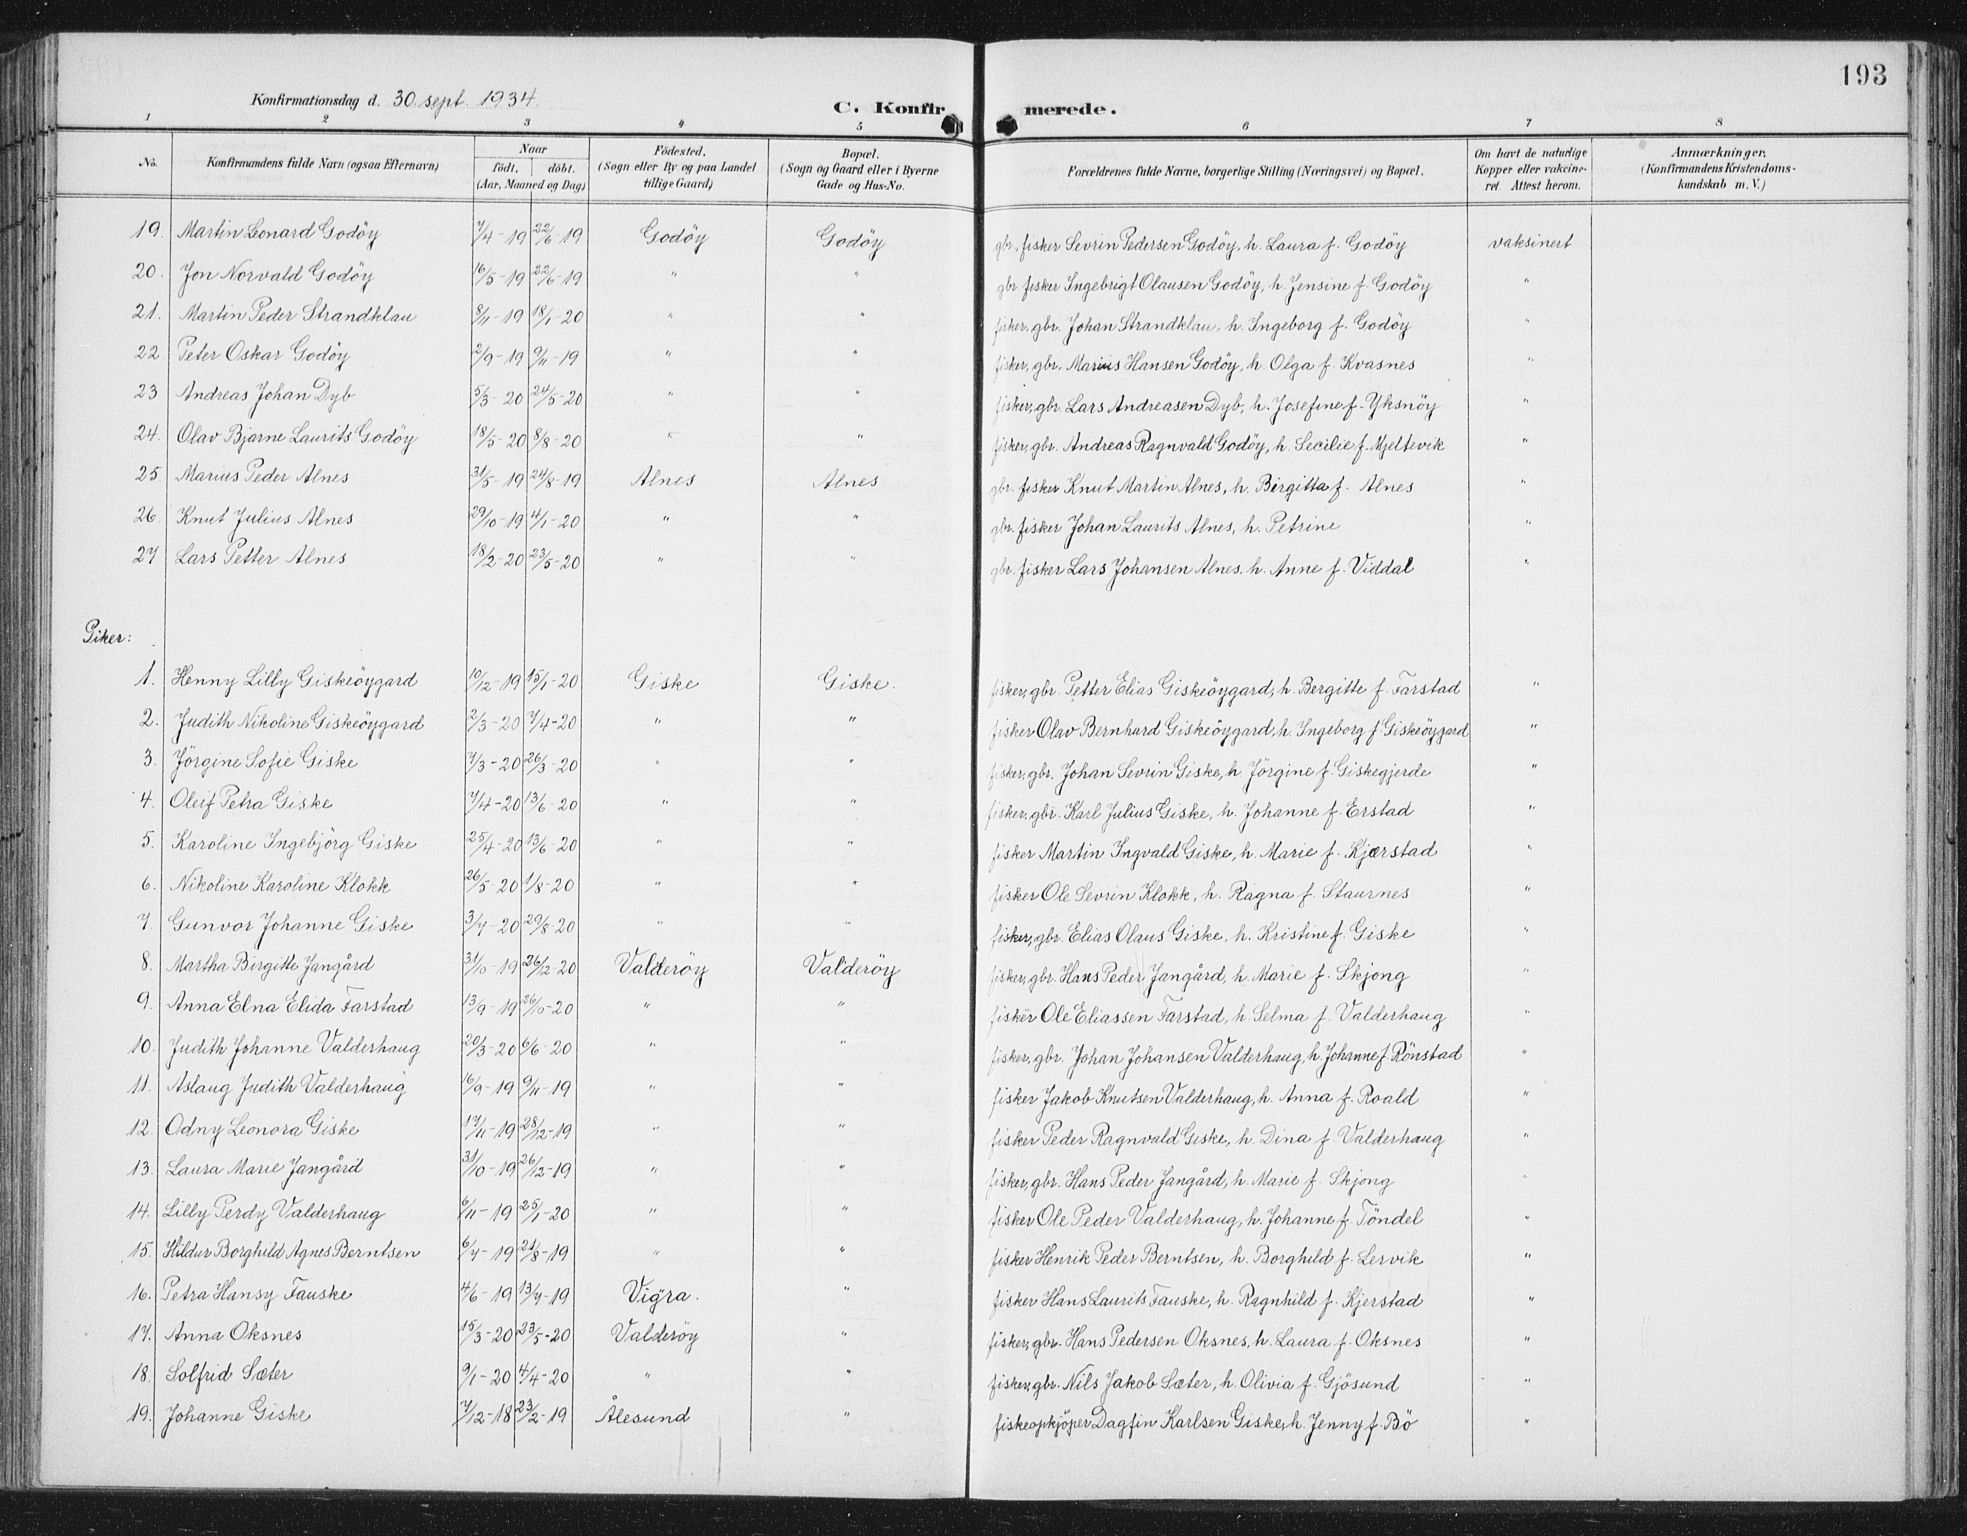 193
Konfirmationsdag d. 30. sept. 1934.
C. Konfirmerede.
1 2 3 4 5 6 7 8
No.
Konfirmandens fulde Navn (ogsaa Efternavn)
Naar
födt. döbt.
(Aar, Maaned og Dag)
Födested.
(Sogn eller By og paa Landet
tillige Gaard)
Bopæl.
(Sogn og Gaard eller i Byerne
Gade og Hus-No.
Forældrenes fulde Navne, borgerlige Stilling (Næringsvei) og Bopæl.
Om havt de naturlige
Kopper eller vakcine-
ret. Attest herom.
Anmærkninger.
(Konfirmandens Kristendoms-
kundskab m. V.)
19. Martin Leonard Godöy 7/4-19 22/6-19 Godöy Godöy gbr., fisker Sevrin Pedersen Godöy, h. Laura f. Godöy vaksinert
20. Jon Norvald Godöy 16/5-19 22/6-19 " " gbr. fisker Ingebrigt Olausen Godöy, h. Jensine f. Godöy "
21. Martin Peder Strandklau 8/11-19 18/1-20 " " fisker, gbr. Johan Strandklau, h. Ingeborg f. Godöy "
22. Peter Oskar Godöy 2/9-19 9/11-19 " " fisker, gbr. Marius Hansen Godöy, h. Olga f. Kvasnes "
23 Andreas Johan Dyb 5/3-20 24/5-20 " " fisker, gbr. Lars Andreasen Dyb, h. Josefine f. Yksnöy "
24. Olav Bjarne Laurits Godöy 18/5-20 8/8-20 " " fisker, gbr. Andreas Ragnvald Godöy, h. Secilie f. Mjeltevik "
25 Marius Peder Alnes 31/5-19 24/8-19 Alnes Alnes gbr. fisker Knut Martin Alnes, h. Birgitta f. Alnes "
26. Knut Julius Alnes 29/10-19 4/1-20 " " gbr. fisker Johan Laurits Alnes, h. Petrine "
27 Lars Petter Alnes 18/2-20 23/5-20 " " gbr. fisker Lars Johansen Alnes, h. Anne f. Viddal "
Piker:
1. Henny Lilly Giskeöygard 10/12-19 15/1-20 Giske Giske. fisker, gbr. Petter Elias Giskeöygard, h. Bergitte f. Farstad "
2. Judith Nikoline Giskeöygard 2/3-20 7/4-20 " " fisker Olav Bernhard Giskeöygard, h. Ingeborg f. Giskeöygard "
3. Jörgine Sofie Giske 7/3-20 26/3-20 " " fisker, gbr. Johan Sevrin Giske, h. Jörgine f. Giskegjerde "
4. Oleif Petra Giske 7/4-20 13/6-20 " " fisker, gbr. Karl Julius Giske, h. Johanne f. Erstad "
5. Karoline Ingebjörg Giske 25/4-20 13/6-20 " " fisker Martin Ingvald Giske, h. Marie f. Kjærstad "
6. Nikoline Karoline Klokk 26/5-20 1/8-20 " " fisker Ole Sevrin Klokk, h. Ragna f. Staurnes "
7. Gunvor Johanne Giske 3/7-20 29/8-20 " " fisker, gbr. Elias Olaus Giske, h. Kristine f. Giske "
8. Martha Birgitte Jangård 31/10-19 26/12-20 Valderöy Valderöy fisker, gbr. Hans Peder Jangård, h. Marie f. Skjong "
9. Anna Elna Elida Farstad 13/9-19 26/10-20 " " fisker Ole Eliassen Farstad, h. Selma f. Valderhaug "
10. Judith Johanne Valderhaug 20/3-20 6/6-20 " " fisker, gbr. Johan Johansen Valderhaug, h. Johanne f. Rönstad "
11. Aslaug Judith Valderhaug 16/9-19 9/11-19 " " fisker Jakob Knutsen Valderhaug, h. Anna f. Roald "
12. Odny Leonora Giske 17/11-19 28/12-19 " " fisker Peder Ragnvald Giske, h. Dina f. Valderhaug "
13. Laura Marie Jangård 31/10-19 26/12-19 " " fisker, gbr. Hans Peder Jangård, h. Marie f. Skjong "
14. Lilly Perdy Valderhaug 6/11-19 25/1-20 " " fisker Ole Peder Valderhaug, h. Johanne f. Töndel "
15. Hildur Borghild Agnes Berntsen 6/7-19 21/8-19 " " fisker Henrik Peder Berntsen, h. Borghild f. Lervik "
16. Petra Hansy Fauske 4/6-19 13/7-19 Vigra. " fisker Hans Laurits Fauske, h. Ragnhild f. Kjerstad "
17. Anna Oksnes 15/3-20 23/5-20 Valderöy " fisker, gbr. Hans Pedersen Oksnes, h. Laura f. Oksnes "
18. Solfrid Sæter 9/1-20 4/4-20 " " fisker, gbr. Nils Jakob Sæter, h. Olivia f. Gjösund "
19. Johanne Giske 7/12-18 23/2-19 Ålesund " fiskeopkjöper Dagfin Karlsen Giske, h. Jenny f. Bö "